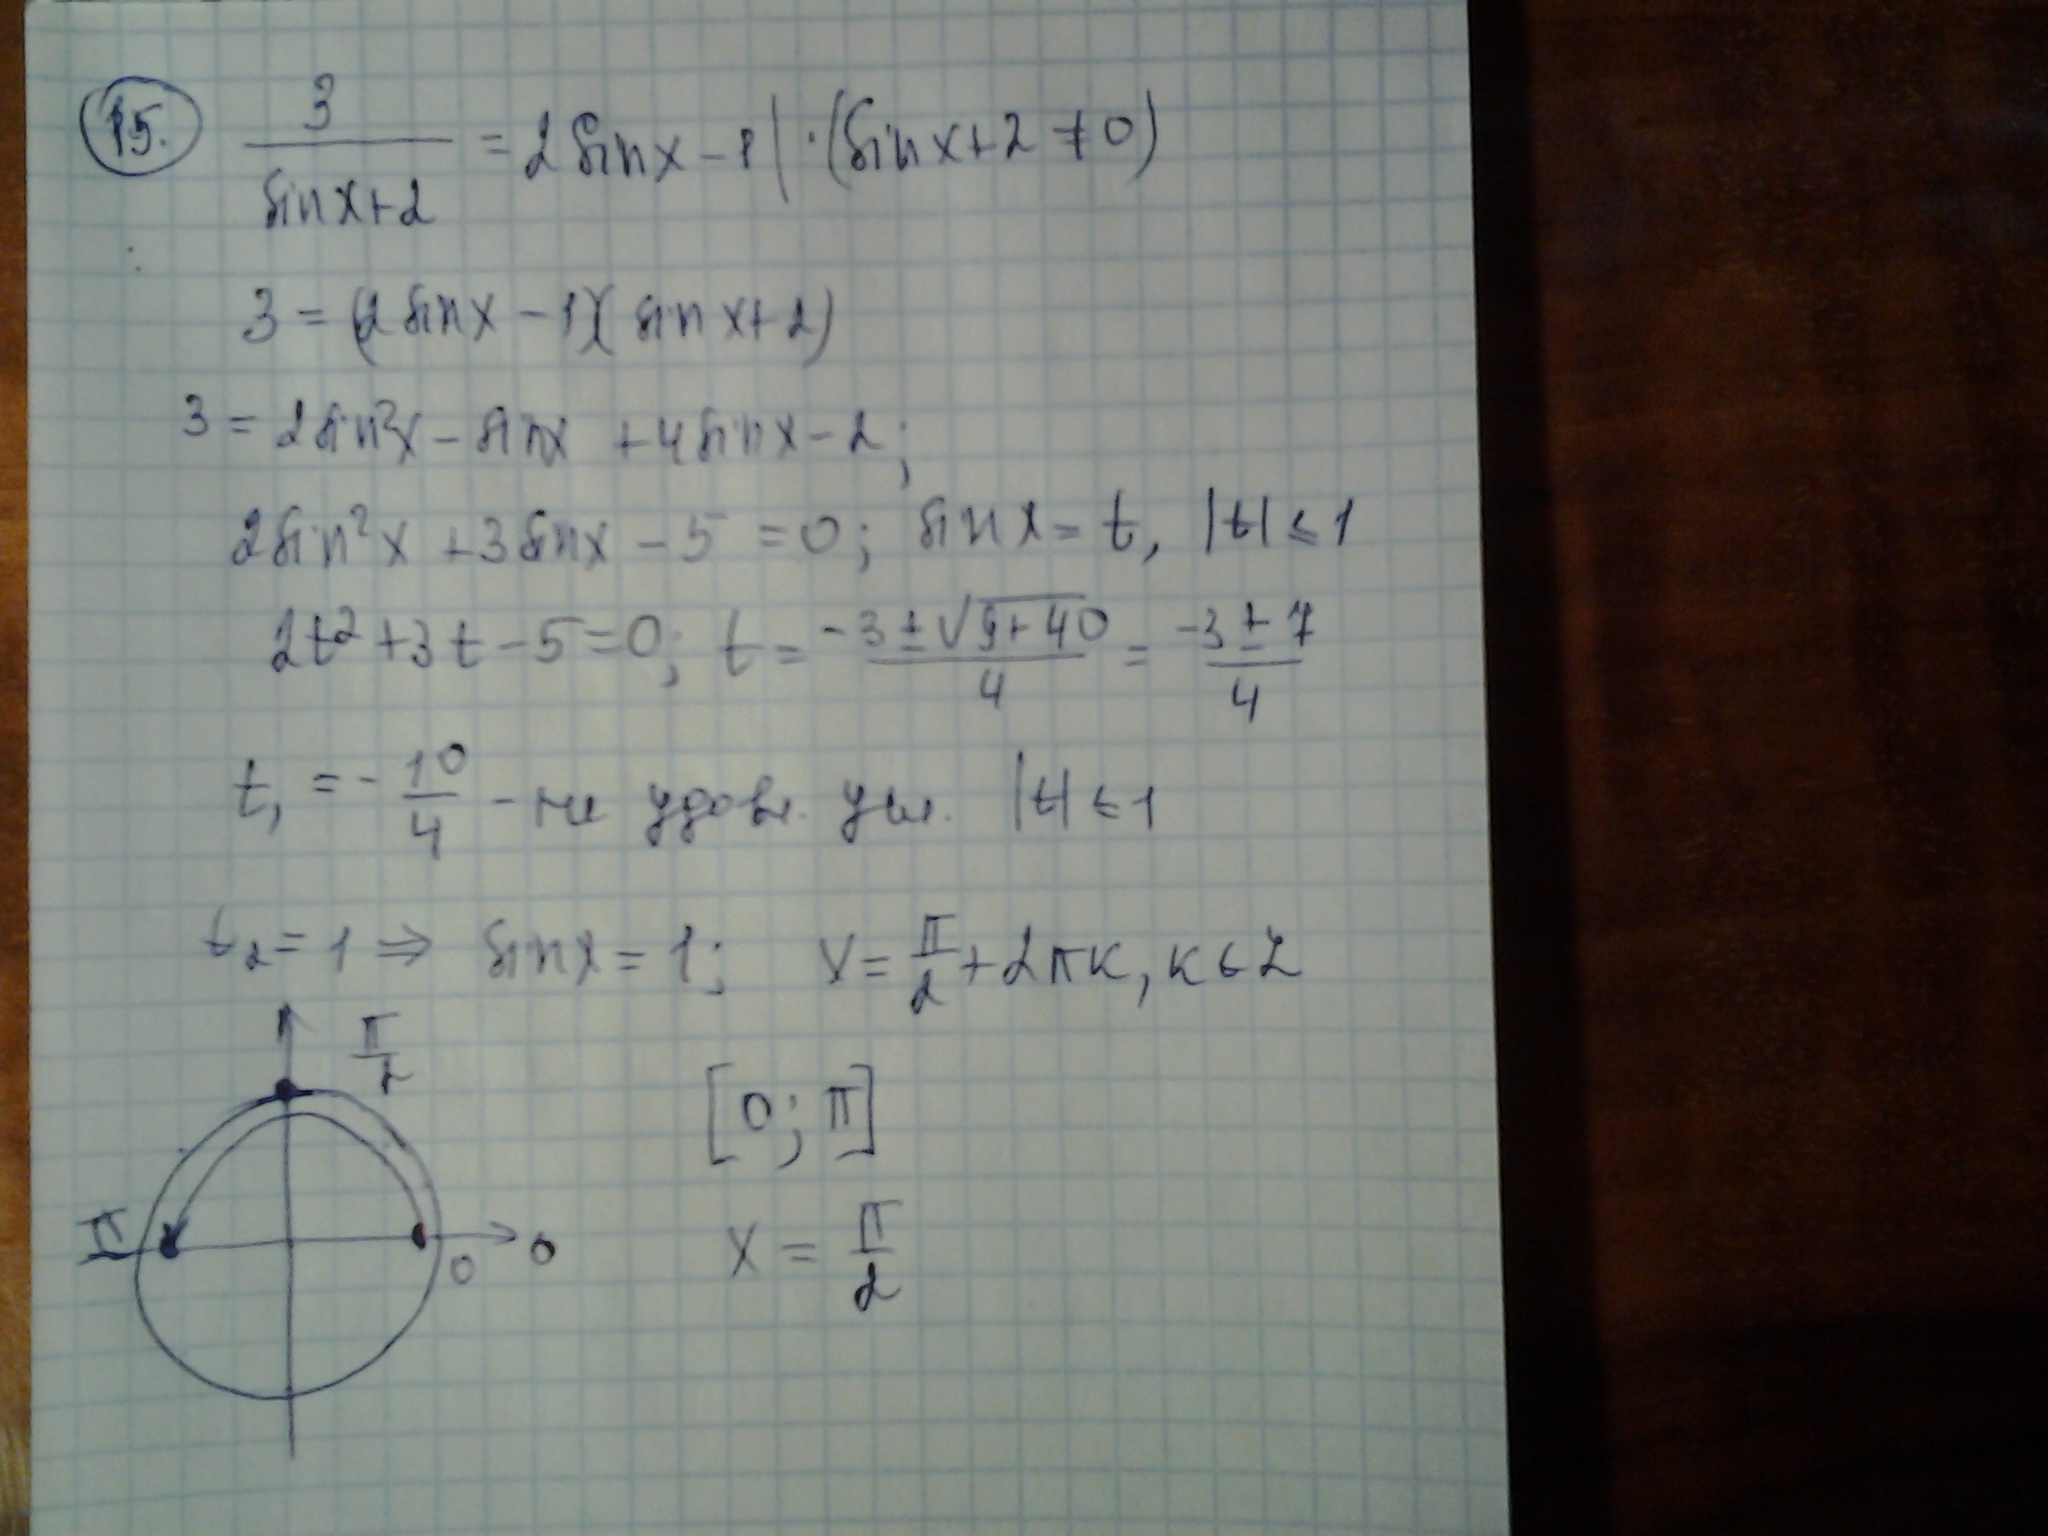 15. 3/(sin x+2) = 2 sin x - 1 | ·(sin x+2 ≠ 0)
3 = (2 sin x - 1)(sin x+2)
3 = 2 sin²x - sin x + 4 sin x - 2;
2 sin²x + 3 sin x - 5 = 0; sin x = t, |t| ≤ 1
2t² + 3t - 5 = 0; t = (-3 ± √(9+40))/4 = (-3 ± 7)/4
t₁ = - 10/4 - не удовл. усл. |t| ≤ 1
t₂ = 1 ⇒ sin x = 1; x = π/2 + 2πк, к ∈ Z
π/2
[0; π]
π 0 0
x = π/2